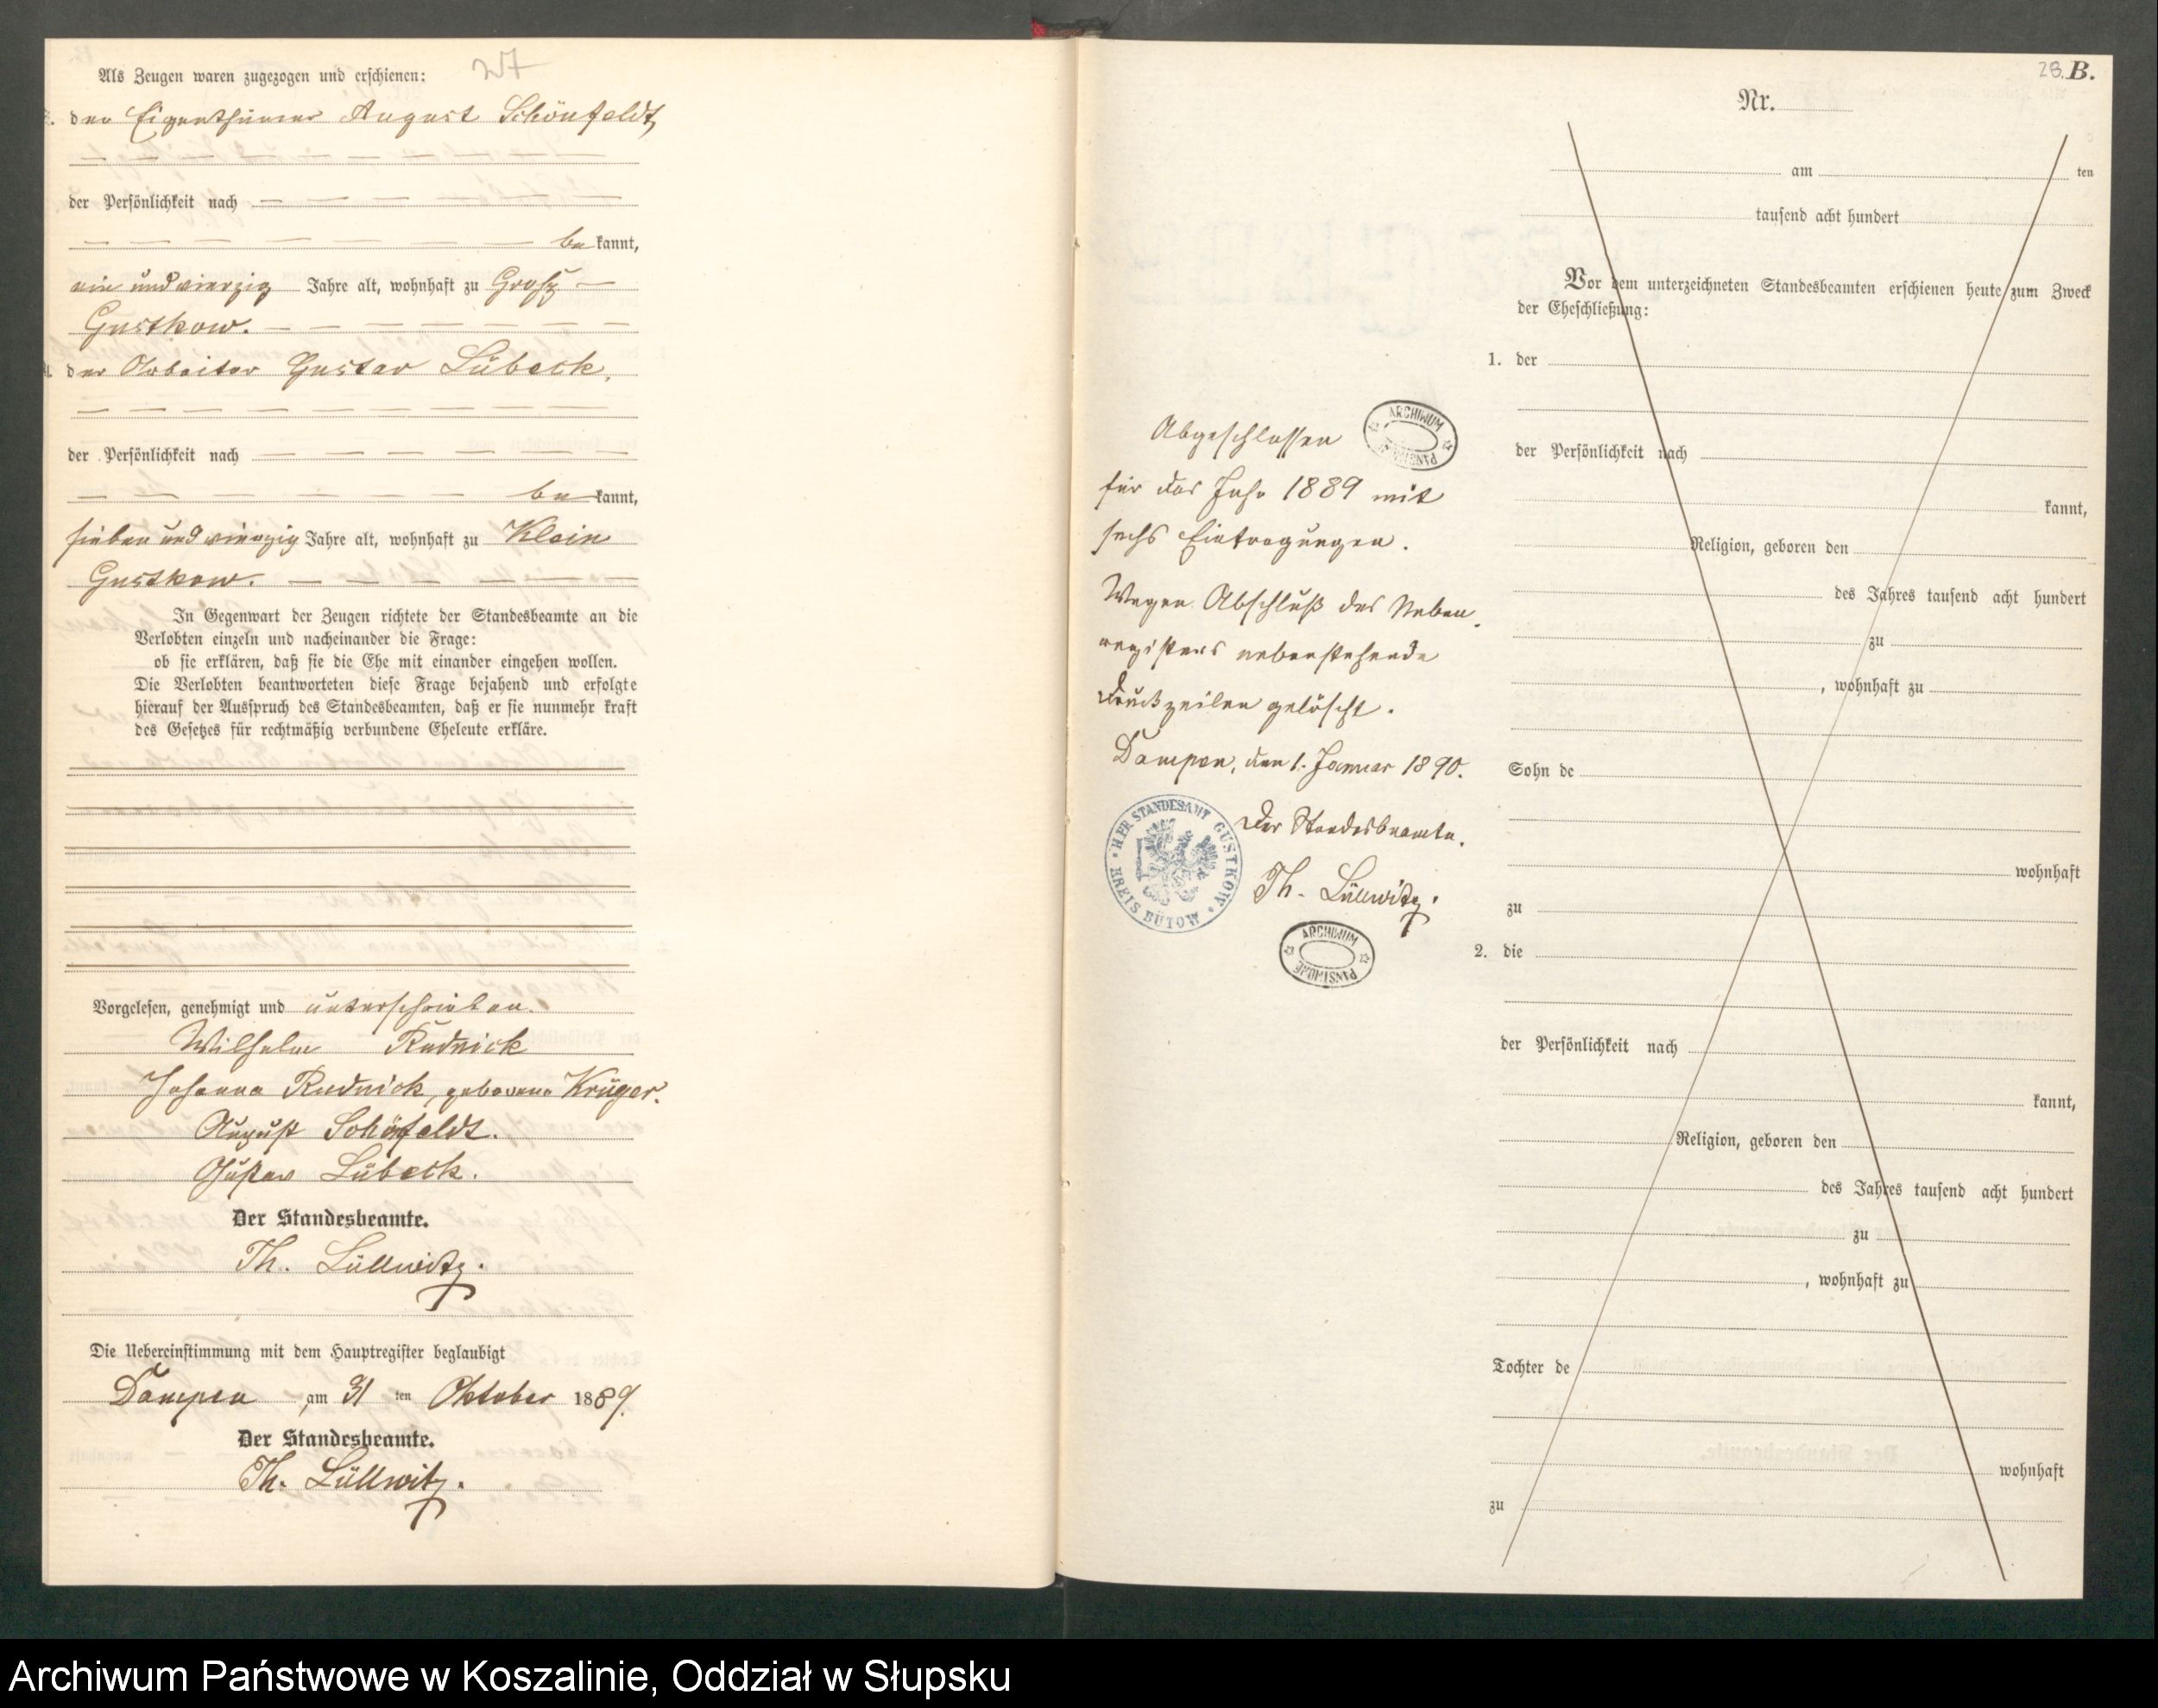 27
Als Zeugen waren zugezogen und erschienen:
der Eigenthümer August Schönfeldt,
der Persönlichkeit nach
be kannt,
ein und vierzig Jahre alt, wohnhaft zu Groß
Gustkow.
der Arbeiter Gustav Lübeck,
der Persönlichkeit nach
be kannt,
sieben und vierzig Jahre alt, wohnhaft zu Klein
Gustkow.
In Gegenwart der Zeugen richtete der Standesbeamte an die
Verlobten einzeln und nacheinander die Frage:
ob sie erklären, daß sie die Ehe mit einander eingehen wollen.
Die Verlobten beantworteten diese Frage bejahend und erfolgte
hierauf der Ausspruch des Standesbeamten, daß er sie nunmehr kraft
des Gesetzes für rechtmäßig verbundene Eheleute erkläre.
Vorgelesen, genehmigt und unterschrieben.
Wilhelm Rudnick
Johanna Rudnick, geborene Krüger.
August Schönfeldt.
Gustav Lübeck.
Der Standesbeamte.
Th. Lüllwitz.
Die Uebereinstimmung mit dem Hauptregister beglaubigt
Dampen, am 31 ten Oktober 1889.
Der Standesbeamte.
Th. Lüllwitz.
Abgeschlossen
für das Jahr 1889 mit
sechs Eintragungen.
Wegen Abschluß des Neben-
registers nebenstehende
Druckzeilen gelöscht.
Dampen, den 1. Januar 1890.
Der Standesbeamte.
Th. Lüllwitz.
STANDESAMT GUSTKOW
KREIS BÜTOW
ARCHIWUM PAŃSTWOWE
ARCHIWUM PAŃSTWOWE
28. B.
Nr.
am ten
tausend acht hundert
Vor dem unterzeichneten Standesbeamten erschienen heute zum Zweck
der Eheschließung:
1. der
der Persönlichkeit nach
kannt,
Religion, geboren den
des Jahres tausend acht hundert
zu
, wohnhaft zu
Sohn de
wohnhaft
zu
2. die
der Persönlichkeit nach
kannt,
Religion, geboren den
des Jahres tausend acht hundert
zu
, wohnhaft zu
Tochter de
wohnhaft
zu
Archiwum Państwowe w Koszalinie, Oddział w Słupsku